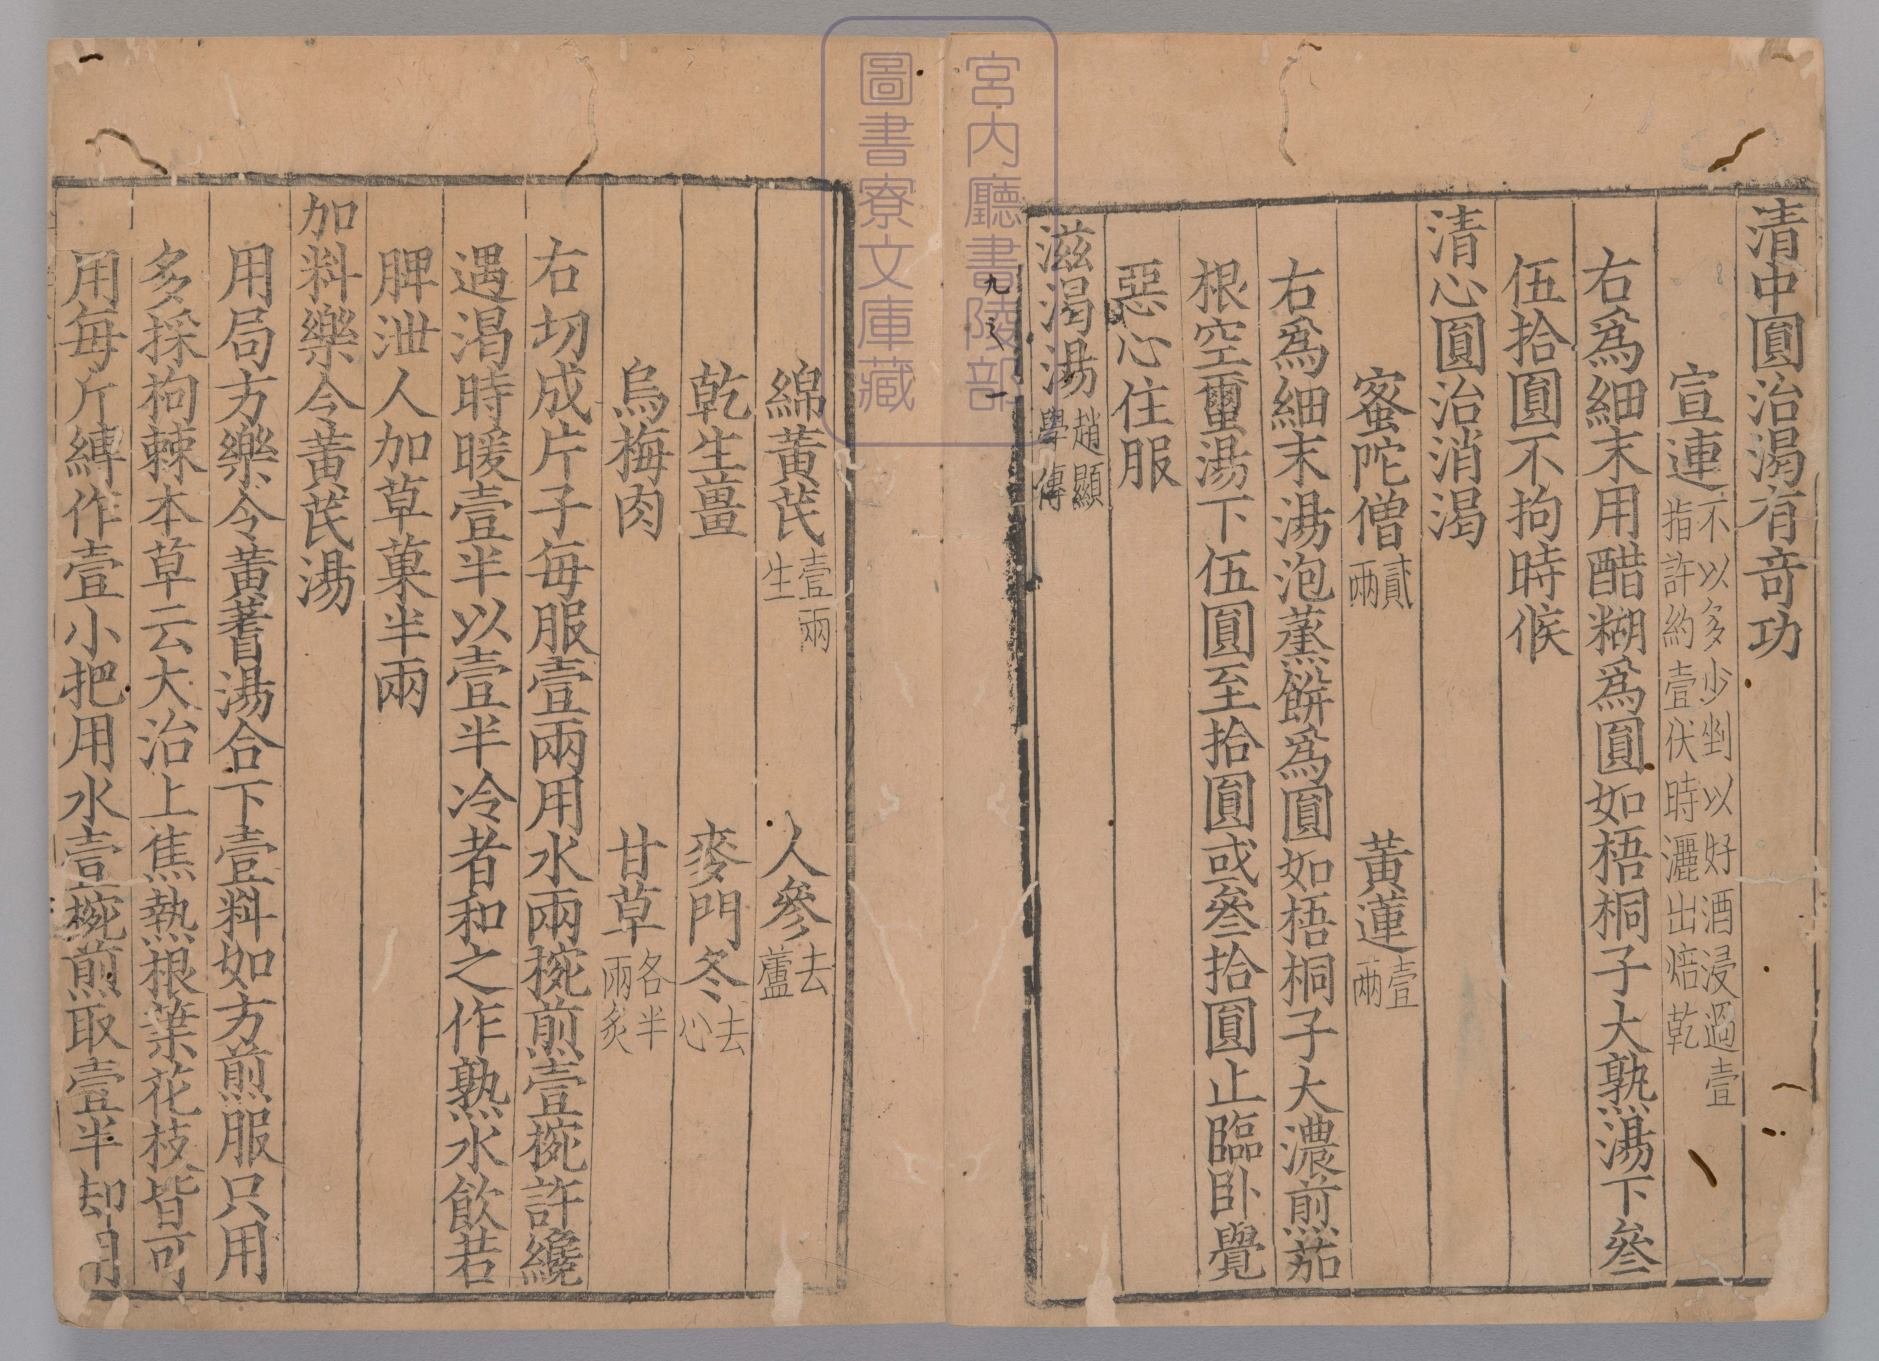 清中圓治渴有奇功
宣連不以多少剉以好酒浸過壹
指許約壹伏時灑出焙乾
右為細末用醋糊為圓如梧桐子大熟湯下叄
伍拾圓不拘時候
清心圓治消渴
蜜陀僧貳兩 黃蓮壹兩
右為細末湯泡蒸餅為圓如梧桐子大濃煎茄
根空𧖟湯下伍圓至拾圓或叄拾圓止臨卧覺
惡心住服
滋渴湯趙顯
學傳
九之一
綿黃芪壹兩
生 人參去
蘆
乾生薑 麥門冬去
心
烏梅肉 甘草各半
兩炙
右切成片子每服壹兩用水兩椀煎壹椀許纔
遇渴時暖壹半以壹半冷者和之作熟水飲若
脾泄人加草菓半兩
加料樂令黃芪湯
用局方樂令黃蓍湯合下壹料如方煎服只用
多採枸棘本草云大治上焦熱根葉花枝皆可
用每斤縛作壹小把用水壹椀煎取壹半却用
宮內廳書陵部
圖書寮文庫藏